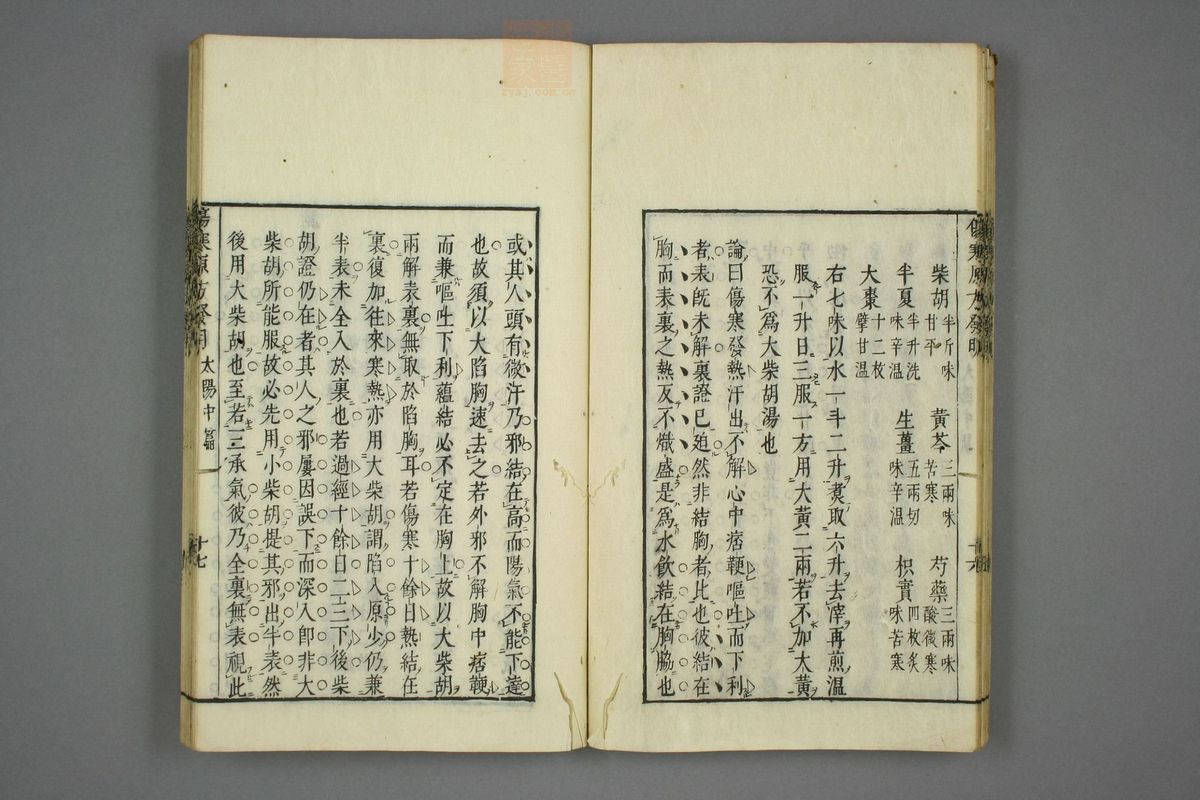 傷寒原方發明
柴胡半斤味甘平 黃芩三兩味苦寒 芍藥三兩味酸微寒
半夏半升洗味辛溫 生薑五兩切味辛溫 枳實四枚炙味苦寒
大棗十二枚擘甘溫
右七味以水一斗二升煑取六升去滓再煎溫
服一升日三服一方用大黃二兩若不加大黃
恐不爲大柴胡湯也
論曰傷寒發熱汗出不解心中痞鞕嘔吐而下利
者表旣未解裏證已廹然非結胸者比也彼結在
胸而表裏之熱反不熾盛是爲水飲結在胸脇也
或其人頭有微汗乃邪結在高而陽氣不能下達
也故須以大陷胸速去之若外邪不解胸中痞鞕
而兼嘔吐下利蘊結必不定在胸上故以大柴胡
兩解表裏無取於陷胸耳若傷寒十餘日熱結在
裏復加往來寒熱亦用大柴胡謂陷入原少仍兼
半表未全入於裏也若過經十餘日二三下後柴
胡證仍在者其人之邪屢因誤下而深入卽非大
柴胡所能服故必先用小柴胡提其邪出半表然
後用大柴胡也至若三承氣彼乃全裏無表視此
傷寒原方發明 太陽中篇 十七
zysj.com.cn